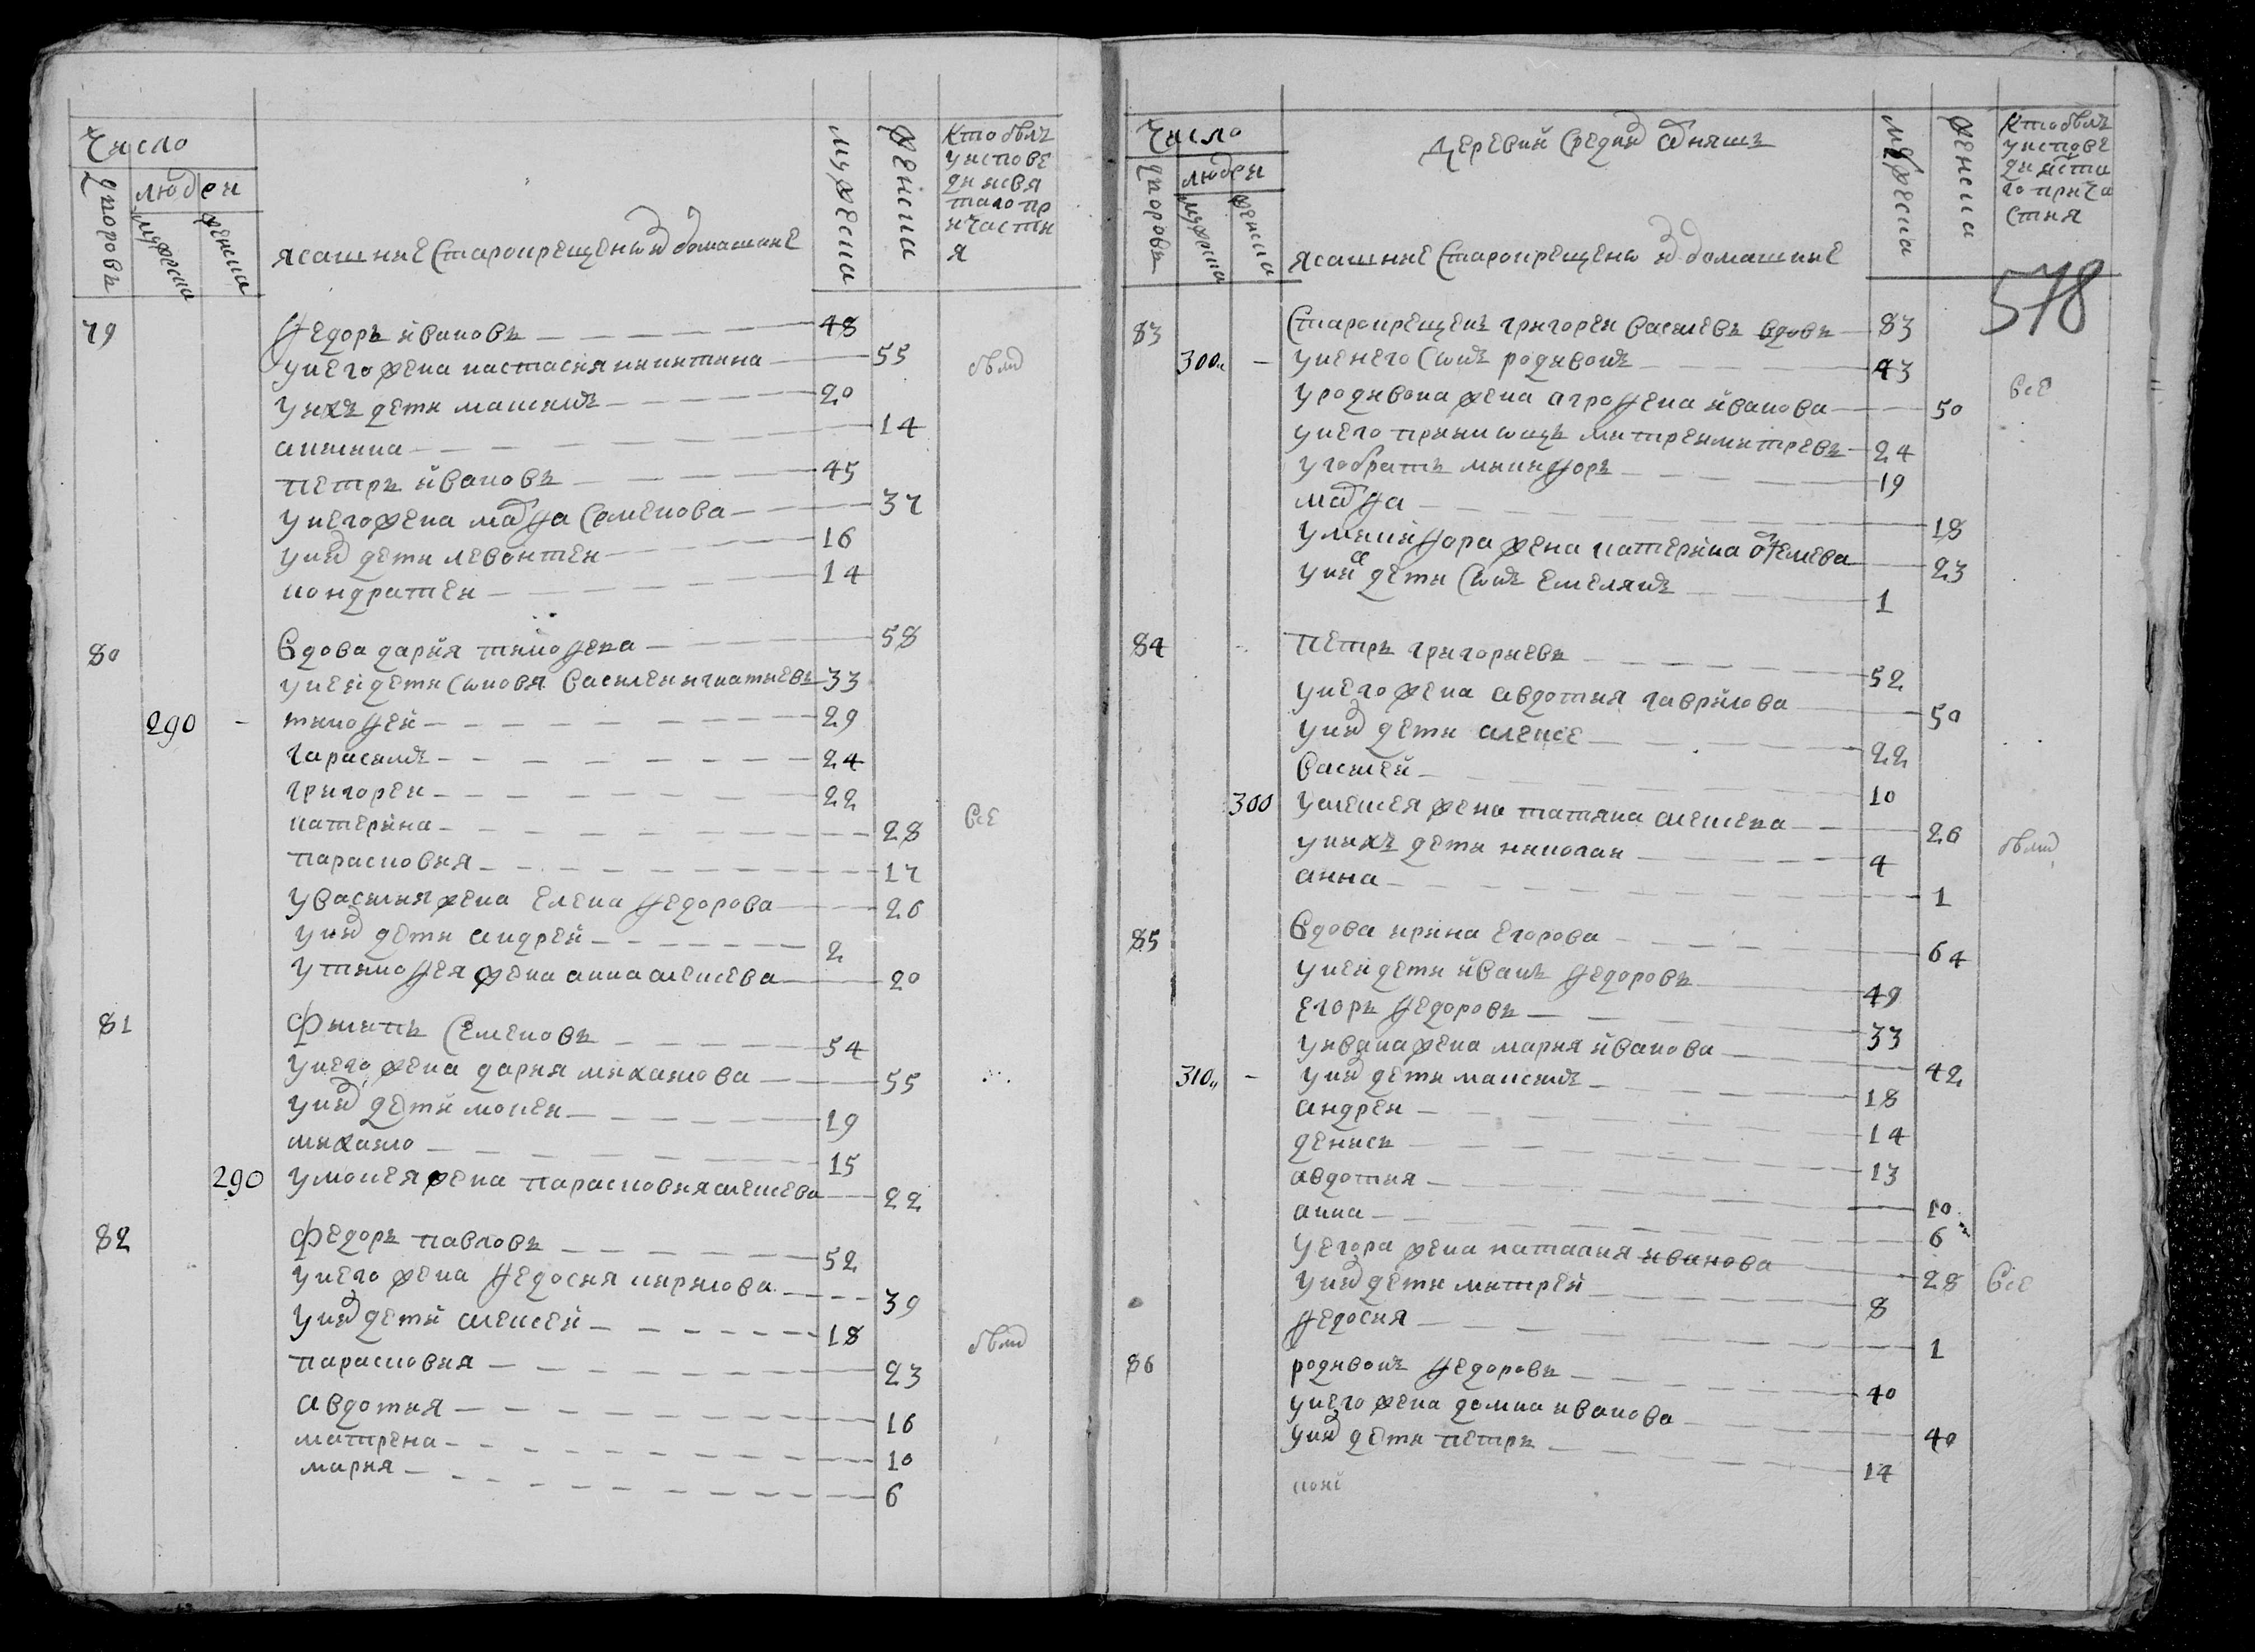 Число
дворовъ
людеи
мужеска
женска
ясашние старокрещены и домашние
мужеска
женска
кто былъ
уиспове
ди исвя
таго пр
ичасти
я
79 федоръ ивановъ 48
унего жена настасия никитина 55 были
унихъ дети максимъ 20
акилина 14
петръ ивановъ 45
унего жена мафа семенова 37
уних дети левонтеи 16
кондратеи 14
80 вдова дарйя тимофеева 58
унеи дети сыновя василеи игнатиевъ 33
290 - тимофеи 29
гарасимъ 24
григореи 22
катерина 28 все
парасковия 17
увасилия жена елена федорова 26
уних дети андреи 2
утимофея жена анна алексеева 20
81 филипъ семеновъ 54
унего жена дария михаилова 55
уних дети мокеи 19
михаило 15
290 умокея жена парасковия алексеева 22
82 федоръ павловъ 52
унего жена федосия кирилова 39
уних дети алексеи 18 были
парасковия 23
авдотия 16
матрена 10
мария 6
Число
дворовъ
людеи
мужеска
женска
деревни средих адняшъ
ясашние старокрещены и домашние
мужеска
женска
кто былъ
уиспове
ди исвята
го прича
стия
578
83 старокрещенъ григореи василевъ вдовъ 83
300 - унего сынъ родивонъ 43
уродивона жена аграфена иванова 50 все
унего приниошъ митреи митревъ 24
уго братъ микифоръ 19
мафа 18
умикифора жена катерина
23
уних дети сынъ емелянъ 1
84 - петръ григориевъ 52
унего жена авдотия гаврилова 50
уних дети алексе 22
василеи 10
300 уалексея жена татяна алексеева 26
уних дети николаи 4 были
анна 1
85 вдова ирина егорова 64
унеи дети иванъ федоровъ 49
егоръ федоровъ 33
уивана жена мария иванова 42
310 - уних дети максимъ 18
андреи 14
денисъ 13
авдотия 10
анна 6
уегора жена наталия иванова 28 все
уних дети митреи 8
федосия 1
86 родивонъ федоровъ 40
унего жена домна иванова 40
уних дети петръ 14
конi